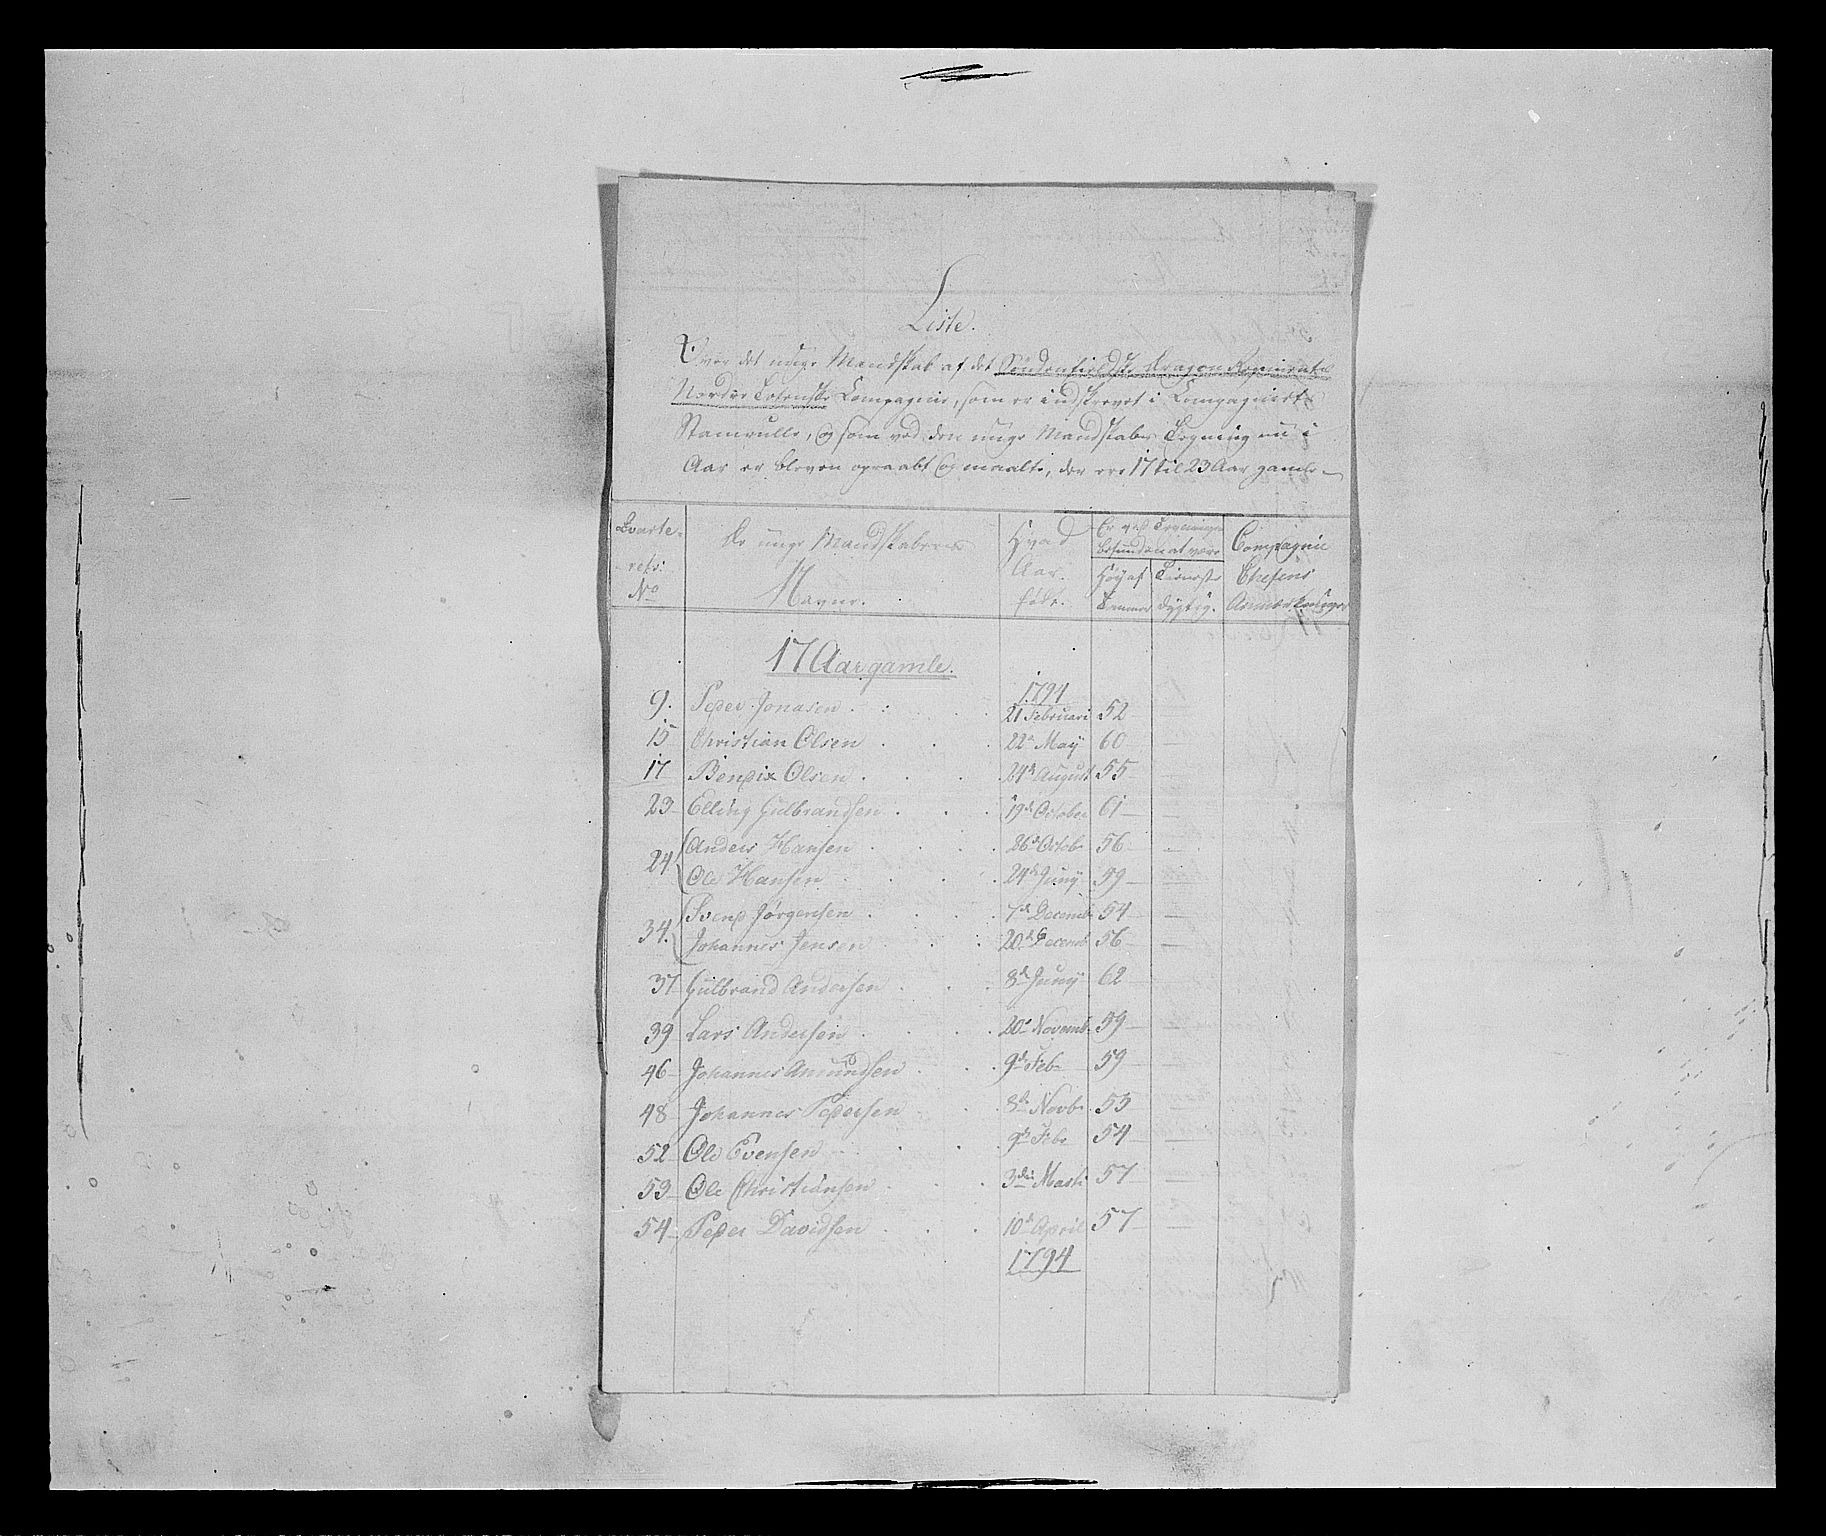 Liste.
Over det unge Mandskab af det Søndenfieldske Dragon Regiments
Nordre Totenske Compagnie, som er indskrevet i Compagniets
Stamrulle, og som ved den unge Mandskabs Tegning nu i
Aar er bleven opraabt og maalt, der ere 17 til 23 Aar gamle
Qvarte-
reets:
No
De unge Mandskabernes
Navne.
Hvad
Aar
föde.
Er ved Tegningen
befunden at være
Høy af
Tommer
Tieneste
dygtig.
Compagnie
Chefens
Anmærkninger
17 Aar gamle.
1794
9. Peder Jonasen 21 Februari 52
15 Christian Olsen 22d May 60
17 Bendix Olsen 24d August 55
23 Elling Gulbrandsen 19de October 61
24 Anders Hansen 26d Octob 56
Ole Hansen 24d Juny 59
34. Svend Jørgensen 7d Decemb 54
Johannes Jensen 20d Decemb 56
37 Gulbrand Andersen 8d Juny 62
39 Lars Andersen 20d Novemb 59
46 Johannes Amundsen 9d Feb 59
48 Johannes Pedersen 8d Novb 53
52 Ole Evensen 9d Feb 54
53 Ole Christiansen 3die Marti 57
54 Peder Davidsen 10d April 57
1794